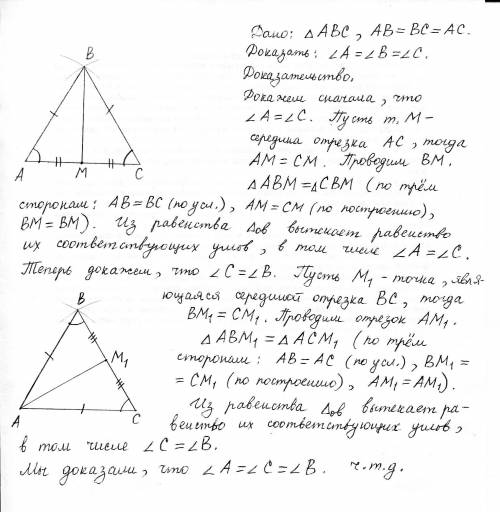 Дано: △ABC, AB=BC=AC.
Доказать: ∠A=∠B=∠C.
Доказательство.
Докажем сначала, что
∠A=∠C. Пусть т. M-
середина отрезка AC, тогда
AM=CM. Проводим BM.
△ABM=△CBM (по трём
сторонам: AB=BC (по усл.), AM=CM (по построению),
BM=BM). Из равенства △ов вытекает равенство
их соответствующих углов, в том числе ∠A=∠C.
Теперь докажем, что ∠C=∠B. Пусть M₁ - точка, явля-
ющаяся серединой отрезка BC, тогда
BM₁=CM₁. Проводим отрезок AM₁.
△ABM₁=△ACM₁ (по трём
сторонам: AB=AC (по усл.), BM₁=
=CM₁ (по построению), AM₁=AM₁).
Из равенства △ов вытекает ра-
венство их соответствующих углов,
в том числе ∠C=∠B.
Мы доказали, что ∠A=∠C=∠B. ч.т.д.
B
A
M
C
B
M₁
A
C